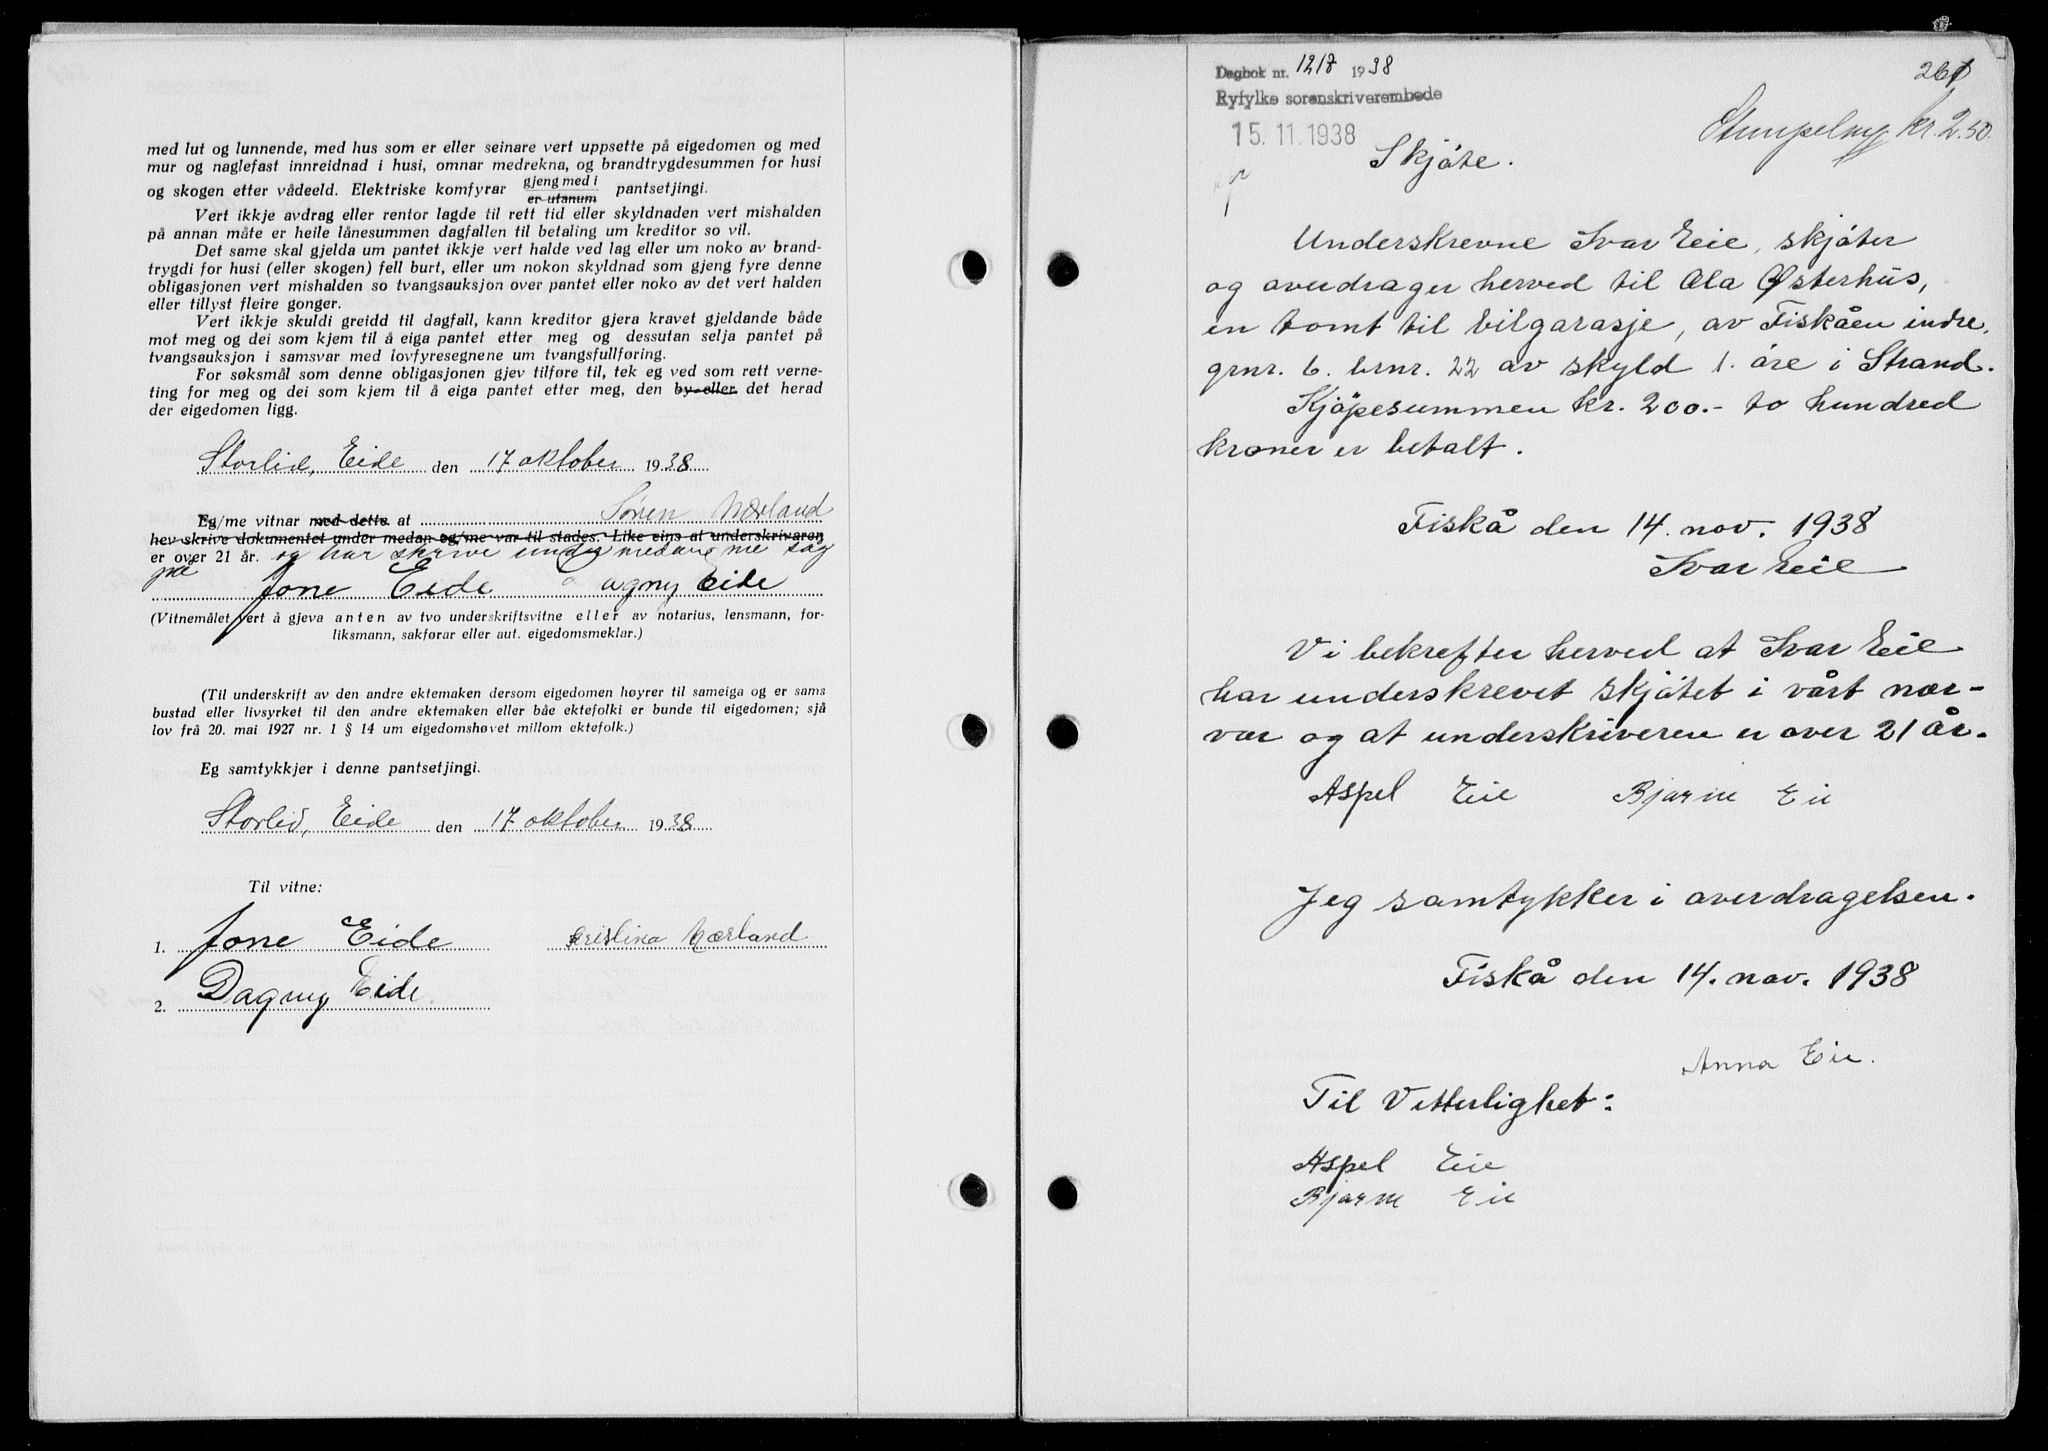 med lut og lunnende, med hus som er eller seinare vert uppsette på eigedomen og med
mur og naglefast innreidnad i husi, omnar medrekna, og brandtrygdesummen for husi
og skogen etter vådeeld. Elektriske komfyrar gjeng med i pantsetjingi.
er utanum
Vert ikkje avdrag eller rentor lagde til rett tid eller skyldnaden vert mishalden
på annan måte er heile lånesummen dagfallen til betaling um kreditor so vil.
Det same skal gjelda um pantet ikkje vert halde ved lag eller um noko av brand-
trygdi for husi (eller skogen) fell burt, eller um nokon skyldnad som gjeng fyre denne
obligasjonen vert mishalden so tvangsauksjon over pantet eller noko av det vert halden
eller tillyst fleire gonger.
Vert ikkje skuldi greidd til dagfall, kann kreditor gjera kravet gjeldande både
mot meg og dei som kjem til å eiga pantet etter meg og dessutan selja pantet på
tvangsauksjon i samsvar med lovfyresegnene um tvangsfullføring.
For søksmål som denne obligasjonen gjev tilføre til, tek eg ved som rett verne-
ting for meg og dei som kjem til å eiga pantet etter meg, den by- eller det herad
der eigedomen ligg.
Storlid, Eide den 17 oktober 1938
Eg/me vitnar med dette at Søren Nærland
hev skrive dokumentet under medan eg/me var til stades. Like eins at underskrivaren
er over 21 år. og har skrive under medan me såg
på
Jone Eide Dagny Eide
(Vitnemålet vert å gjeva anten av tvo underskriftsvitne eller av notarius, lensmann, for-
liksmann, sakførar eller aut. eigedomsmeklar.)
(Til underskrift av den andre ektemaken dersom eigedomen høyrer til sameiga og er sams
bustad eller livsyrket til den andre ektemaken eller båe ektefolki er bunde til eigedomen; sjå
lov frå 20. mai 1927 nr. 1 § 14 um eigedomshøvet millom ektefolk.)
Eg samtykkjer i denne pantsetjingi.
Storlid, Eide den 17 oktober 1938
Til vitne:
1. Jone Eide Kristina Nærland
2. Dagny Eide.
Dagbok nr. 1217 1938
Ryfylke sorenskriverembede
15. 11. 1938
261
Stempelmg kr. 2.50
Skjøte.
Underskrevne Ivar Eie, skjøter
og averdrager herved til Ola Østerhus,
en tomt til bilgarasje, av Fiskåen indre,
grnr. 6. brnr. 22 av skyld 1. øre i Strand.
Kjøpesummen kr. 200.- to hundred
kroner er betalt.
Fiskå den 14. nov. 1938
Ivar Eie
Vi bekrefter herved at Ivar Eie
har underskrevet skjøtet i vårt nær-
vær og at underskriveren er over 21 år.
Aspel Eie Bjarne Eie
Jeg samtykker i averdragelsen.
Fiskå den 14. nov. 1938
Anna Eie.
Til Vitterlighet:
Aspel Eie
Bjarne Eie